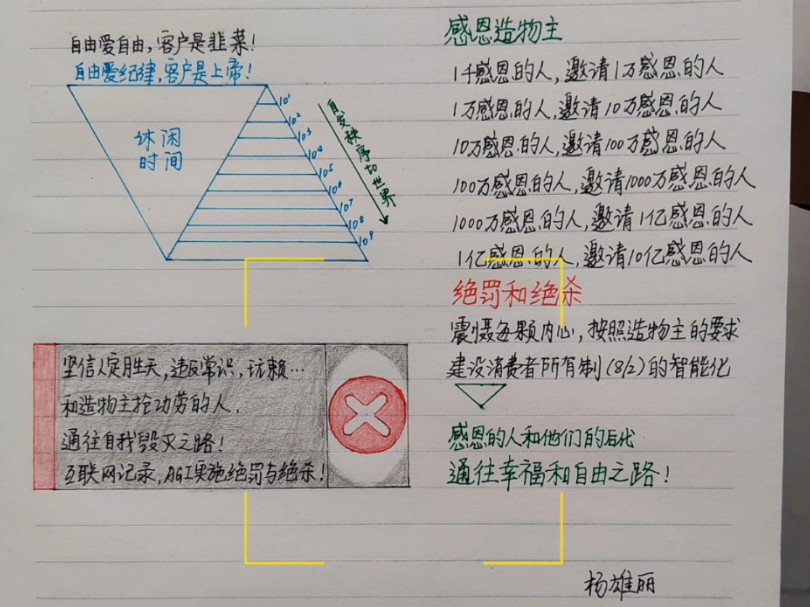 自由爱自由,客户是韭菜!
自由爱纪律,客户是上帝!
休闲
时间
10¹
10²
10³
10⁴
10⁵
10⁶
10⁷
10⁸
10⁹
自发秩序的世界
坚信人定胜天,违反常识,坑赖…
和造物主抢功劳的人,
通往自我毁灭之路!
互联网记录,AGI实施绝罚与绝杀!
感恩造物主
1千感恩的人,邀请1万感恩的人
1万感恩的人,邀请10万感恩的人
10万感恩的人,邀请100万感恩的人
100万感恩的人,邀请1000万感恩的人
1000万感恩的人,邀请1亿感恩的人
1亿感恩的人,邀请10亿感恩的人
绝罚和绝杀
震慑每颗内心,按照造物主的要求
建设消费者所有制(8/2)的智能化
感恩的人和他们的后代
通往幸福和自由之路!
杨雄丽